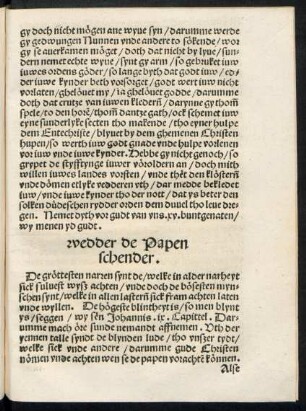 gy doch nicht mögen ane wyue syn/ darumme werde
gy gedwungen Nunnen vnde andere to sökende/ wor
gy se auerkamen möget/ doth dat nicht by lyue/ sun-
dern nemet echte wyue/ synt gy arm/ so gebruket iuw
iuwes ordens göder/ so lange byth dat godt iuw/ ed-
der iuwe kynder beth vorsorget/ godt wert iuw nicht
vorlaten/ ghelöuet my/ ia ghelöuet godde/ darumme
doth dat crutze van iuwen kledern/ darynne gy thom
spele/ to den horen/ thom dantze gath/ ock schemet iuw
eyne sunderlyke secten tho makende/ tho eyner hulpe
dem Entechriste/ blyuet by dem ghemenen Christen
hupen/ so werth iuw godt gnade vnde hulpe vorlenen
vor iuw vnde iuwe kynder. Hebbe gy nicht genoch/ so
grypet de styfftynge iuwer vöroldern an/ doch mith
willen iuwes landes vorsten/ vnde theet den klöstern
vnde dömen etlyke redderen vth/ dar medde bekledet
iuw/ vnde iuwe kynder tho der nott/ dat ys beter den
solken düdeschen rydder orden dem duuel tho leue dre-
gen. Nemet dyth vor gudt van vns .xv. buntgenaten/
wy menen yd gudt.
wedder de Papen
schender.
De gröttesten narren synt de/ welke in alder narheyt
sick suluest wyß achten/ vnde doch de bösesten myn-
schen synt/ welke in allen lastern sick fram achten laten
vnde wyllen. De högeste blintheyt is/ so men blynt
ys/ seggen/ wy sen Johannis .ix. Capittel. Dar-
umme mach öt sunde nemandt affnemen. Vth der
yennen talle synde de blynden lude/ tho vnser tydt/
welke sick vnde andere/ darumme gude Christen
nömen vnde achten wen se de papen vorachte können.
Alse